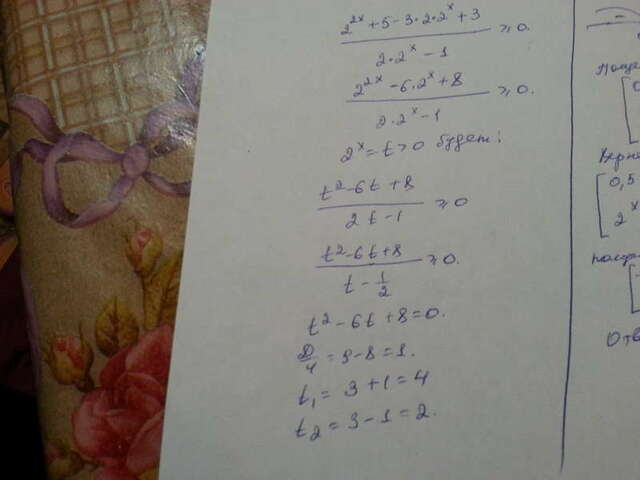 2^2x + 5 - 3·2·2^x + 3 / 2·2^x - 1 ≥ 0.
2^2x - 6·2^x + 8 / 2·2^x - 1 ≥ 0.
2^x = t > 0 будет:
t^2 - 6t + 8 / 2t - 1 ≥ 0
t^2 - 6t + 8 / t - 1/2 ≥ 0.
t^2 - 6t + 8 = 0.
D/4 = 9 - 8 = 1.
t1 = 3 + 1 = 4
t2 = 3 - 1 = 2.
0,5
2^x